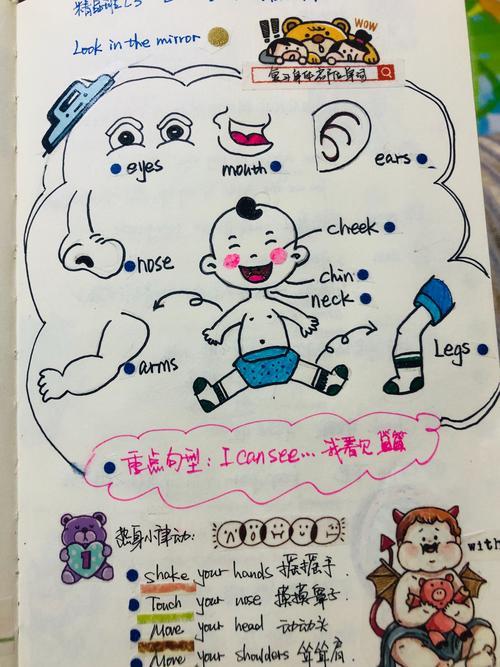 精品班L3
Look in the mirror
WOW
eyes
mouth
ears
nose
cheek
chin
neck
arms
Legs
重点句型：I can see... 我看见
热身小律动：
1
shake your hands 摇摇手
Touch your nose 摸摸鼻子
Move your head 动动头
Move your shoulders 耸耸肩
with